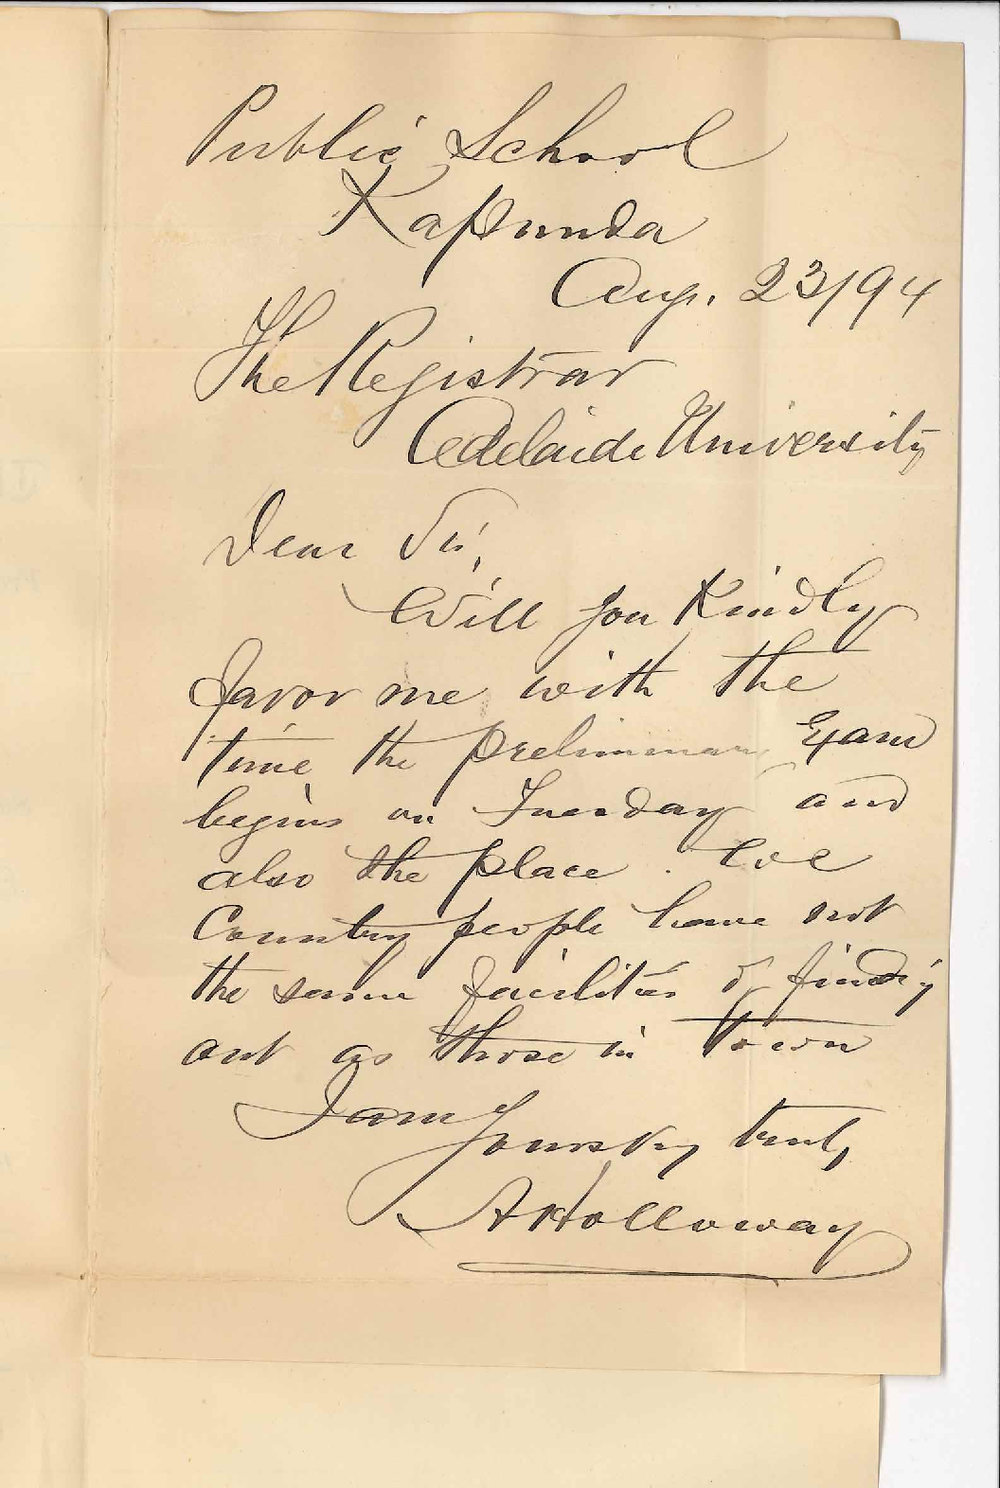 Public School
Kapunda
Aug. 23/94
The Registrar
Adelaide University
Dear Sir,
Will you Kindly
favor me with the
time the preliminary Exam
begins on Tuesday and
also the place. We
Country people have not
the same facilities of finding
out as those in town
I am
Yours very truly
A Holloway